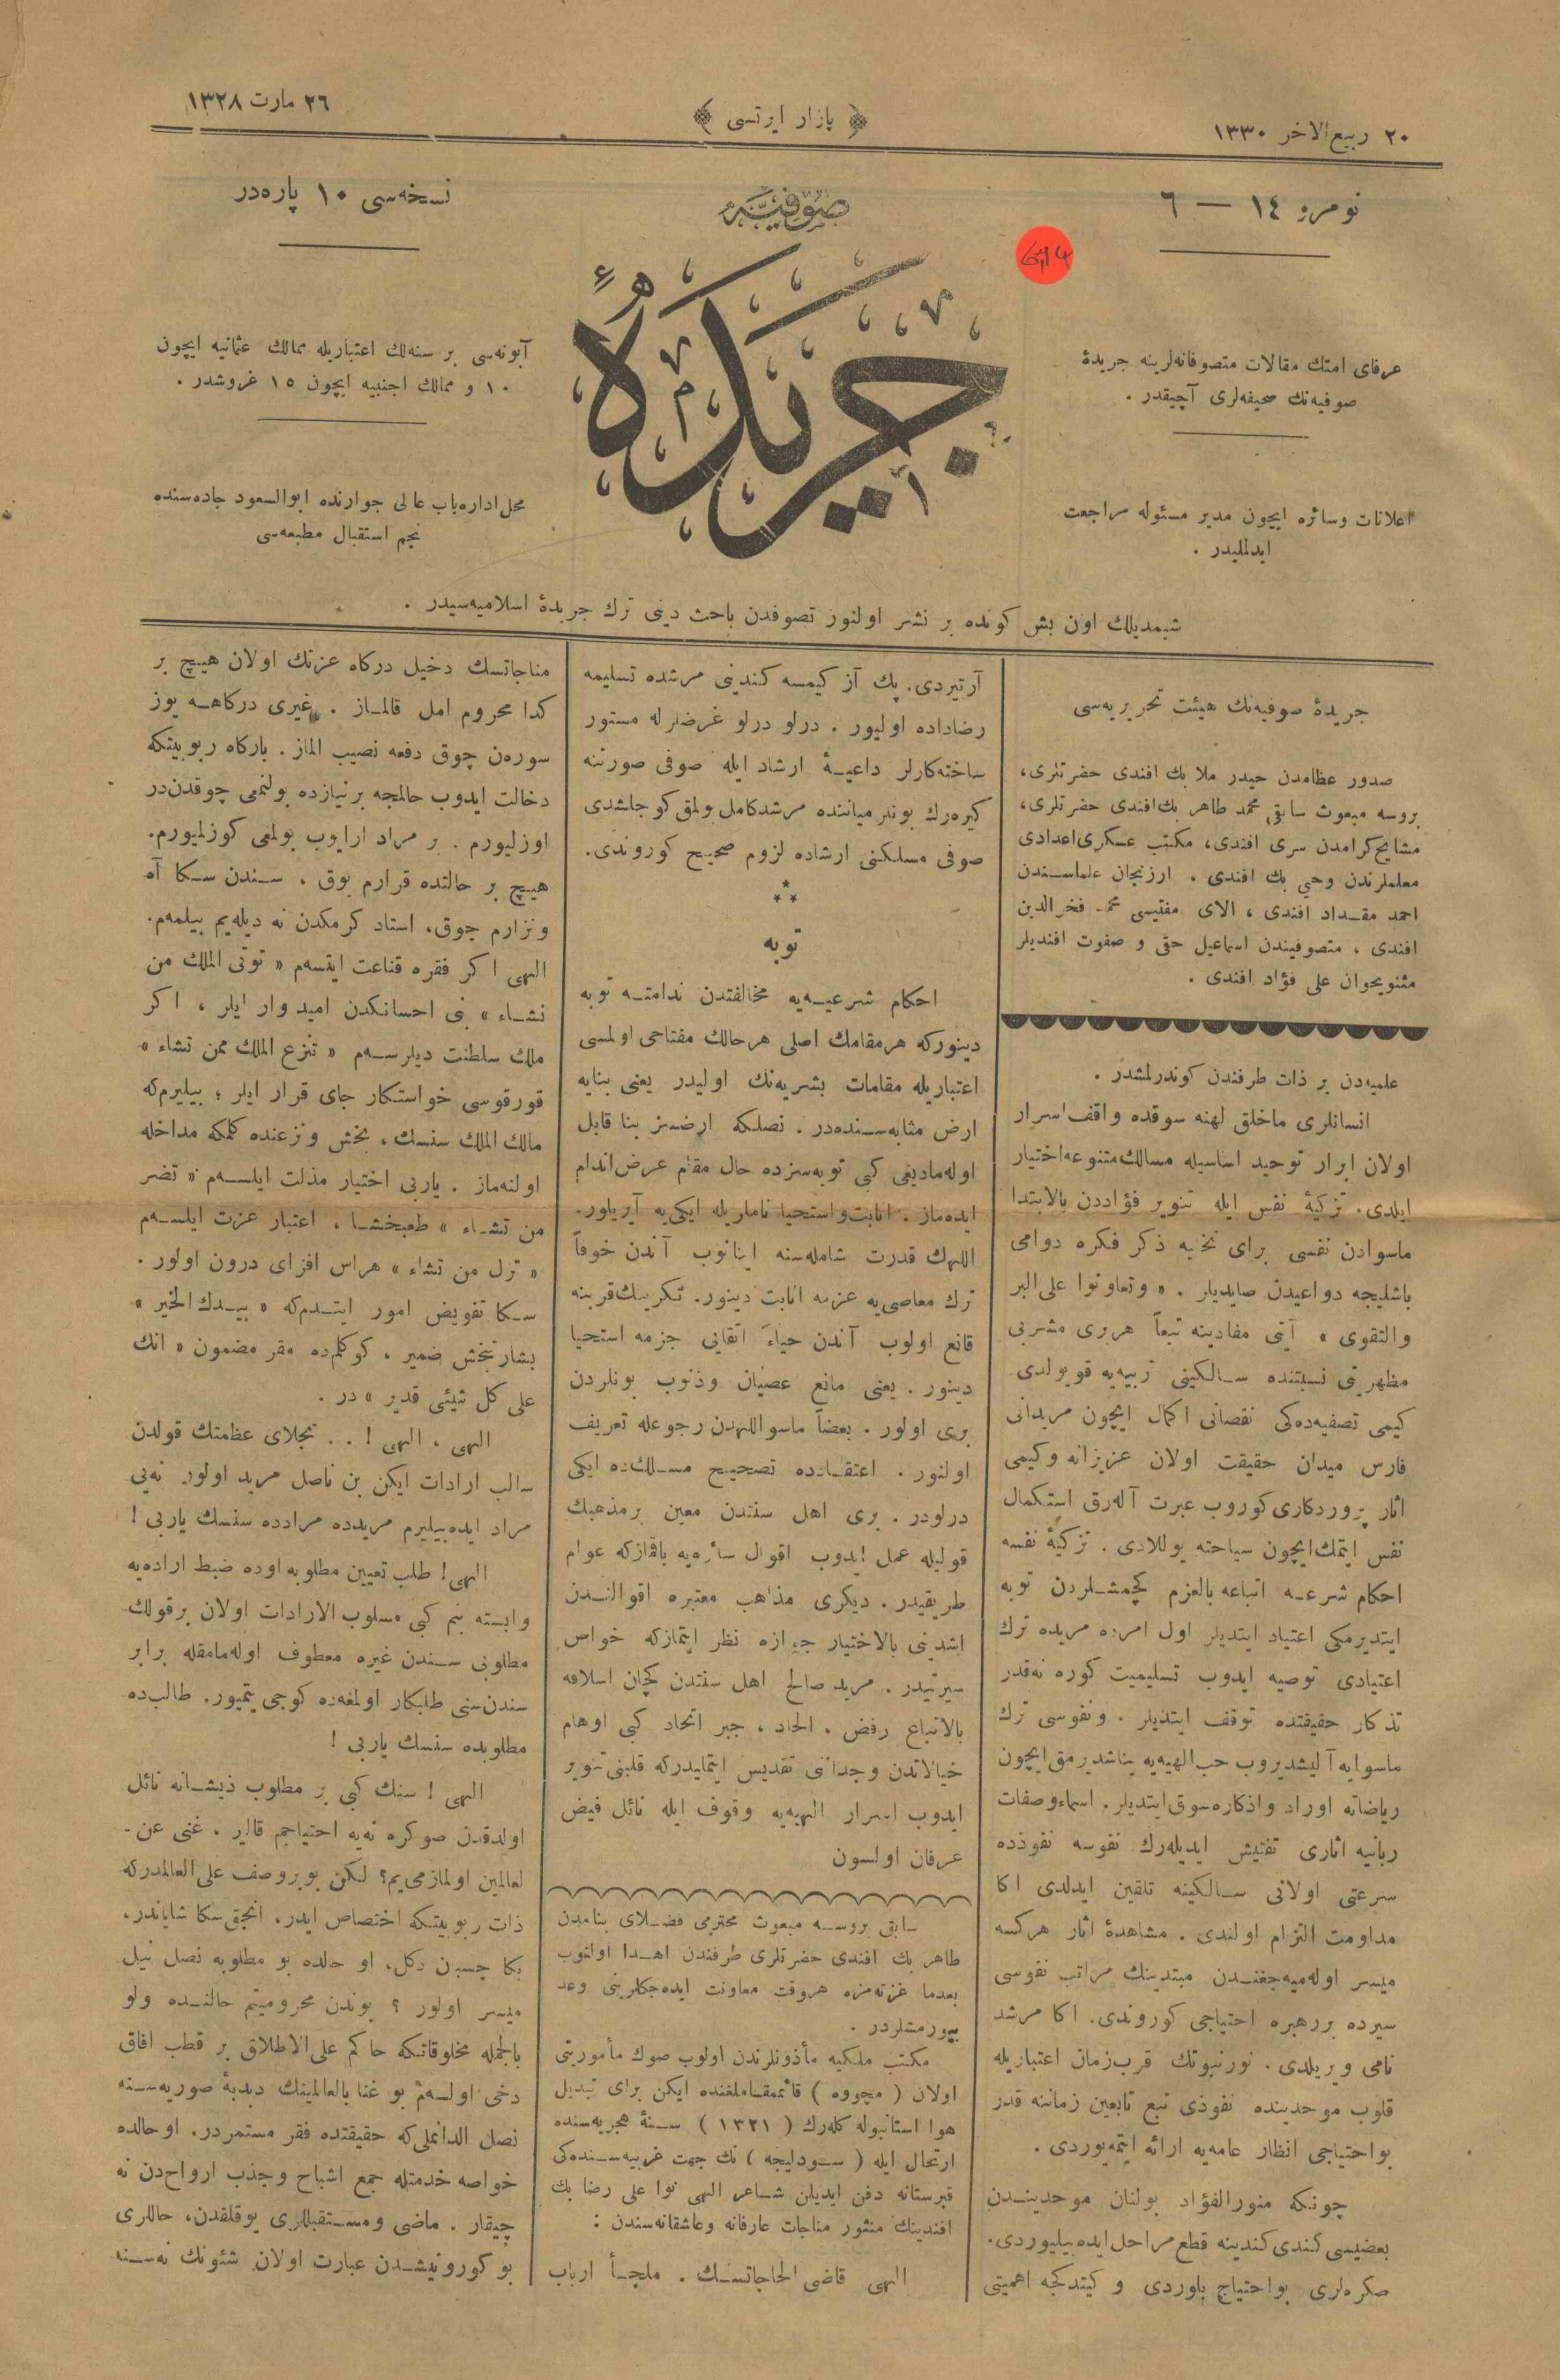 ٢٠ ربيع‌الاخر ١٣٣٠
﴿ پازار ايرتسى ﴾
٢٦ مارت ١٣٢٨
نومرو ١٤ — ٦
صوفيه
جريدهٔ
نسخه‌سى ١٠ پاره‌در
6,14
عرفاى امتك مقالات متصوفانه‌لرينه جريدهٔ
صوفيه‌نك صحيفه‌لرى آچيقدر .
اعلانات وسائره ايچون مدير مسئوله مراجعت
ايدلمليدر .
آبونه‌سى بر سنه‌لك اعتباريله ممالك عثمانيه ايچون
١٠ و ممالك اجنبيه ايچون ١٥ غروشدر .
محل اداره باب عالى جوارنده ابوالسعود جاده‌سنده
نجم استقبال مطبعه‌سى
شيمديلك اون بش كونده بر نشر اولنور تصوفدن باحث دينى ترك جريدهٔ اسلاميه‌سيدر .
جريدهٔ صوفيه‌نك هيئت تحريريه‌سى
صدور عظامدن حيدر ملا بك افندى حضرتلرى،
بروسه مبعوث سابقى محمد طاهر بك افندى حضرتلرى،
مشايخ كرامدن سرى افندى، مكتب عسكرى اعدادى
معلملرندن وحيى بك افندى . ارزنجان علماسندن
احمد مقداد افندى ، الاى مفتيسى محمد فخرالدين
افندى ، متصوفيندن اسماعيل حقى و صفوت افنديلر
مثنويخوان على فؤاد افندى .
علميه‌دن بر ذات طرفندن كوندرلمشدر .
انسانلرى ماخلق لهنه سوقده واقف اسرار
اولان ابرار توحيد اساسيله مسالك متنوعه اختيار
ايلدى. تزكيهٔ نفس ايله تنوير فؤاددن بالابتدا
ماسوادن نفسى براى تخيه ذكر فكره دوامى
باشليجه دواعيدن صايديلر . « وتعاونوا على البر
والتقوى » آيتى مفادينه تبعاً هربرى مشربى
مظهريتى نسبتنده سالكينى تربيه‌يه قويولدى
كيمى تصفيه‌ده‌كى نقصانى اكمال ايچون مريدانى
فارس ميدان حقيقت اولان عزيزانه وكيمى
آثار پروردكارى كوروب عبرت آله‌رق استكمال
نفس ايتمك ايچون سياحته يوللادى . تزكيهٔ نفسه
احكام شرعيه اتباعه بالعزم كچمشلردن توبه
ايتديرمكى اعتياد ايتديلر اول امرده مريده ترك
اعتيادى توصيه ايدوب تسليميت كوره نه‌قدر
تذكار حقيقتده توقف ايتديلر . ونفوسى ترك
ماسوايه آليشديروب حب الهيه‌يه يناشديرمق ايچون
رياضاته اوراد واذكاره سوق ايتديلر. اسماء وصفات
ربانيه آثارى تفتيش ايديله‌رك نفوسه نفوذده
سرعتى اولانى سالكينه تلقين ايدلدى اكا
مداومت التزام اولندى . مشاهدهٔ آثار هركسه
ميسر اوله‌ميه‌جغندن مبتدينك مراتب نفوسى
سيرده بررهبره احتياجى كوروندى. اكا مرشد
نامى ويريلدى . نورنبوتك قرب زمان اعتباريله
قلوب موحدينده نفوذى تبع تابعين زماننه قدر
بو احتياجى انظار عامه‌يه ارائه ايتميوردى .
چونكه منورالفؤاد بولنان موحديندن
بعضيسى كندى كندينه قطع مراحل ايده‌بيليوردى.
صكره‌لرى بو احتياج بلوردى و كيتدكجه اهميتى
آرتيردى. پك آز كيمسه كندينى مرشده تسليمه
رضاداده اوليور . درلو درلو غرضلرله مستور
ساخته‌كارلر داعيهٔ ارشاد ايله صوفى صورتنه
كيره‌رك بونلر مياننده مرشد كامل بولمق كوجلشدى
صوفى مسلكنى ارشاده لزوم صحيح كوروندى.
⁂
توبه
احكام شرعيه‌يه مخالفتدن ندامته توبه
دينوركه هرمقامك اصلى هرحالك مفتاحى اولمسى
اعتباريله مقامات بشريه‌نك اوليدر يعنى بنايه
ارض مثابه‌سنده‌در . نصلكه ارضسز بنا قابل
اوله‌ماديغى كبى توبه‌سزده حال مقام عرض اندام
ايده‌ماز . انابت واستحيا ناملريله ايكى‌يه آيريلور.
اللهك قدرت شامله‌سنه اينانوب آندن خوفاً
ترك معاصى‌يه عزمه انابت دينور. تكرينك قربنه
قانع اولوب آندن حياءً اتقايى جزمه استحيا
دينور . يعنى مانع عصيان وذنوب بونلردن
برى اولور . بعضاً ماسواللهدن رجوعله تعريف
اولنور . اعتقادده تصحيح مسلك‌ده ايكى
درلودر . برى اهل سنتدن معين برمذهبك
قوليله عمل ايدوب اقوال سائره‌يه باقمازكه عوام
طريقيدر . ديكرى مذاهب معتبره اقوالندن
اشدينى بالاختيار جوازه نظر ايتمازكه خواص
سيرتيدر . مريد صالح اهل سنتدن كچان اسلافه
بالاتباع رفض ، الحاد ، جبر اتحاد كبى اوهام
خيالاتدن وجداننى تقديس ايتمليدركه قلبنى تنوير
ايدوب اسرار الهيه‌يه وقوف ايله نائل فيض
عرفان اولسون
سابق بروسه مبعوث محترمى فضلاى بنامدن
طاهر بك افندى حضرتلرى طرفندن اهدا اولنوب
بعدما غزته‌مزه هروقت معاونت ايده‌جكلرينى وعد
بيورمشلردر .
مكتب ملكيه مأذونلرندن اولوب صوك مأموريتى
اولان ( مچووه ) قائممقاملغنده ايكن براى تبديل
هوا استانبوله كله‌رك ( ١٣٢١ ) سنهٔ هجريه‌سنده
ارتحال ايله ( سودليجه ) نك جهت غربيه‌سنده‌كى
قبرستانه دفن ايديلن شاعر الهى نوا على رضا بك
افندينك منثور مناجات عارفانه وعاشقانه‌سندن :
الهى قاضى الحاجاتسك . ملجأ ارباب
مناجاتسك دخيل دركاه عزتك اولان هيچ بر
كدا محروم امل قالماز . غيرى دركاهه يوز
سورەن چوق دفعه نصيب الماز . باركاه ربوبيتكه
دخالت ايدوب حالمجه برنيازده بولنمى چوقدن‌در
اوزليورم . بر مراد ارايوب بولمغى كوزليورم.
هيچ بر حالتده قرارم يوق ، سندن سكا آه
ونزارم چوق، استاد كرمكدن نه ديله‌يم بيلمه‌م.
الهى اكر فقره قناعت ايتسه‌م « توتى الملك من
تشاء » بنى احسانكدن اميدوار ايلر ، اكر
ملك سلطنت ديلرسه‌م « تنزع الملك ممن تشاء »
قورقوسى خواستكار جاى قرار ايلر ؛ بيليرم‌كه
مالك الملك سنسك ، بخش ونزعنده كلمكه مداخله
اولنه‌ماز . ياربى اختيار مذلت ايلسه‌م « تضر
من تشاء » طمبخشا ، اعتبار عزت ايلسه‌م
« تزل من تشاء » هراس افزاى درون اولور .
سكا تفويض امور ايتدم‌كه « بيدك الخير »
بشارتبخش ضمير ، كوكلمده مقر مضمون « انك
على كل شيئى قدير » در .
الهى ، الهى ! . . تجلاى عظمتك قولدن
سالب ارادات ايكن بن ناصل مريد اولور نه‌يى
مراد ايده‌بيليرم مريدده مرادده سنسك ياربى !
الهى! طلب تعيين مطلوبه اوده ضبط اراده‌يه
وابسته بنم كبى مسلوب الارادات اولان برقولك
مطلوبى سندن غيره معطوف اوله‌مامقله برابر
سندن سنى طلبكار اولمغه‌ده كوجى يتميور. طالب‌ده
مطلوبده سنسك ياربى !
الهى ! سنك كبى بر مطلوب ذيشانه نائل
اولدقدن صوكره نه‌يه احتياجم قالير ، غنى عن-
لعالمين اولمازمى‌يم؟ لكن بو بروصف على العالمدركه
ذات ربوبيتكه اختصاص ايدر، انجق سكا شاياندر،
بكا چسبن دكل، او حالده بو مطلوبه نصل نيل
ميسر اولور ؟ بوندن محروميتم حالنده ولو
بالجمله مخلوقاتكه حاكم على الاطلاق بر قطب افاق
دخى اولسه‌م بو غنا بالعالمينك دبدبهٔ صوريه‌سنه
نصل الدانملى‌كه حقيقتده فقر مستمردر. او حالده
خواصه خدمتله جمع اشباح وجذب ارواح‌دن نه
چيقار . ماضى ومستقبللرى يوقلقدن، حاللرى
بو كورونيشدن عبارت اولان شئونك نه‌سنه